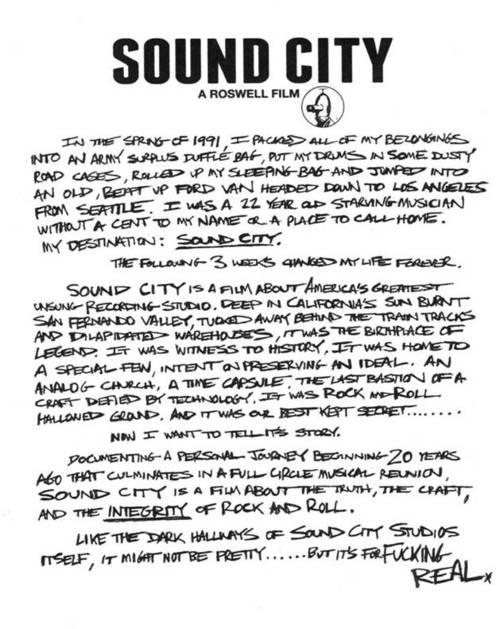 SOUND CITY
A ROSWELL FILM
IN THE SPRING OF 1991, I PACKED ALL OF MY BELONGINGS
INTO AN ARMY SURPLUS DUFFLE BAG, PUT MY DRUMS IN SOME DUSTY
ROAD CASES, ROLLED UP MY SLEEPING BAG AND JUMPED INTO
AN OLD, BEAT UP FORD VAN HEADED DOWN TO LOS ANGELES
FROM SEATTLE. I WAS A 22 YEAR OLD STARVING MUSICIAN
WITHOUT A CENT TO MY NAME OR A PLACE TO CALL HOME.
MY DESTINATION: SOUND CITY.
THE FOLLOWING 3 WEEKS CHANGED MY LIFE FOREVER.
SOUND CITY IS A FILM ABOUT AMERICA'S GREATEST
UNSUNG RECORDING STUDIO. DEEP IN CALIFORNIA'S SUN BURNT
SAN FERNANDO VALLEY, TUCKED AWAY BEHIND THE TRAIN TRACKS
AND DILAPIDATED WAREHOUSES, IT WAS THE BIRTHPLACE OF
LEGEND. IT WAS WITNESS TO HISTORY. IT WAS HOME TO
A SPECIAL FEW, INTENT ON PRESERVING AN IDEAL. AN
ANALOG CHURCH, A TIME CAPSULE. THE LAST BASTION OF A
CRAFT DEFIED BY TECHNOLOGY. IT WAS ROCK AND ROLL
HALLOWED GROUND. AND IT WAS OUR BEST KEPT SECRET........
NOW I WANT TO TELL IT'S STORY.
DOCUMENTING A PERSONAL JOURNEY BEGINNING 20 YEARS
AGO THAT CULMINATES IN A FULL CIRCLE MUSICAL REUNION,
SOUND CITY IS A FILM ABOUT THE TRUTH, THE CRAFT,
AND THE INTEGRITY OF ROCK AND ROLL.
LIKE THE DARK HALLWAYS OF SOUND CITY STUDIOS
ITSELF, IT MIGHT NOT BE PRETTY......BUT IT'S FOR FUCKING
REAL x